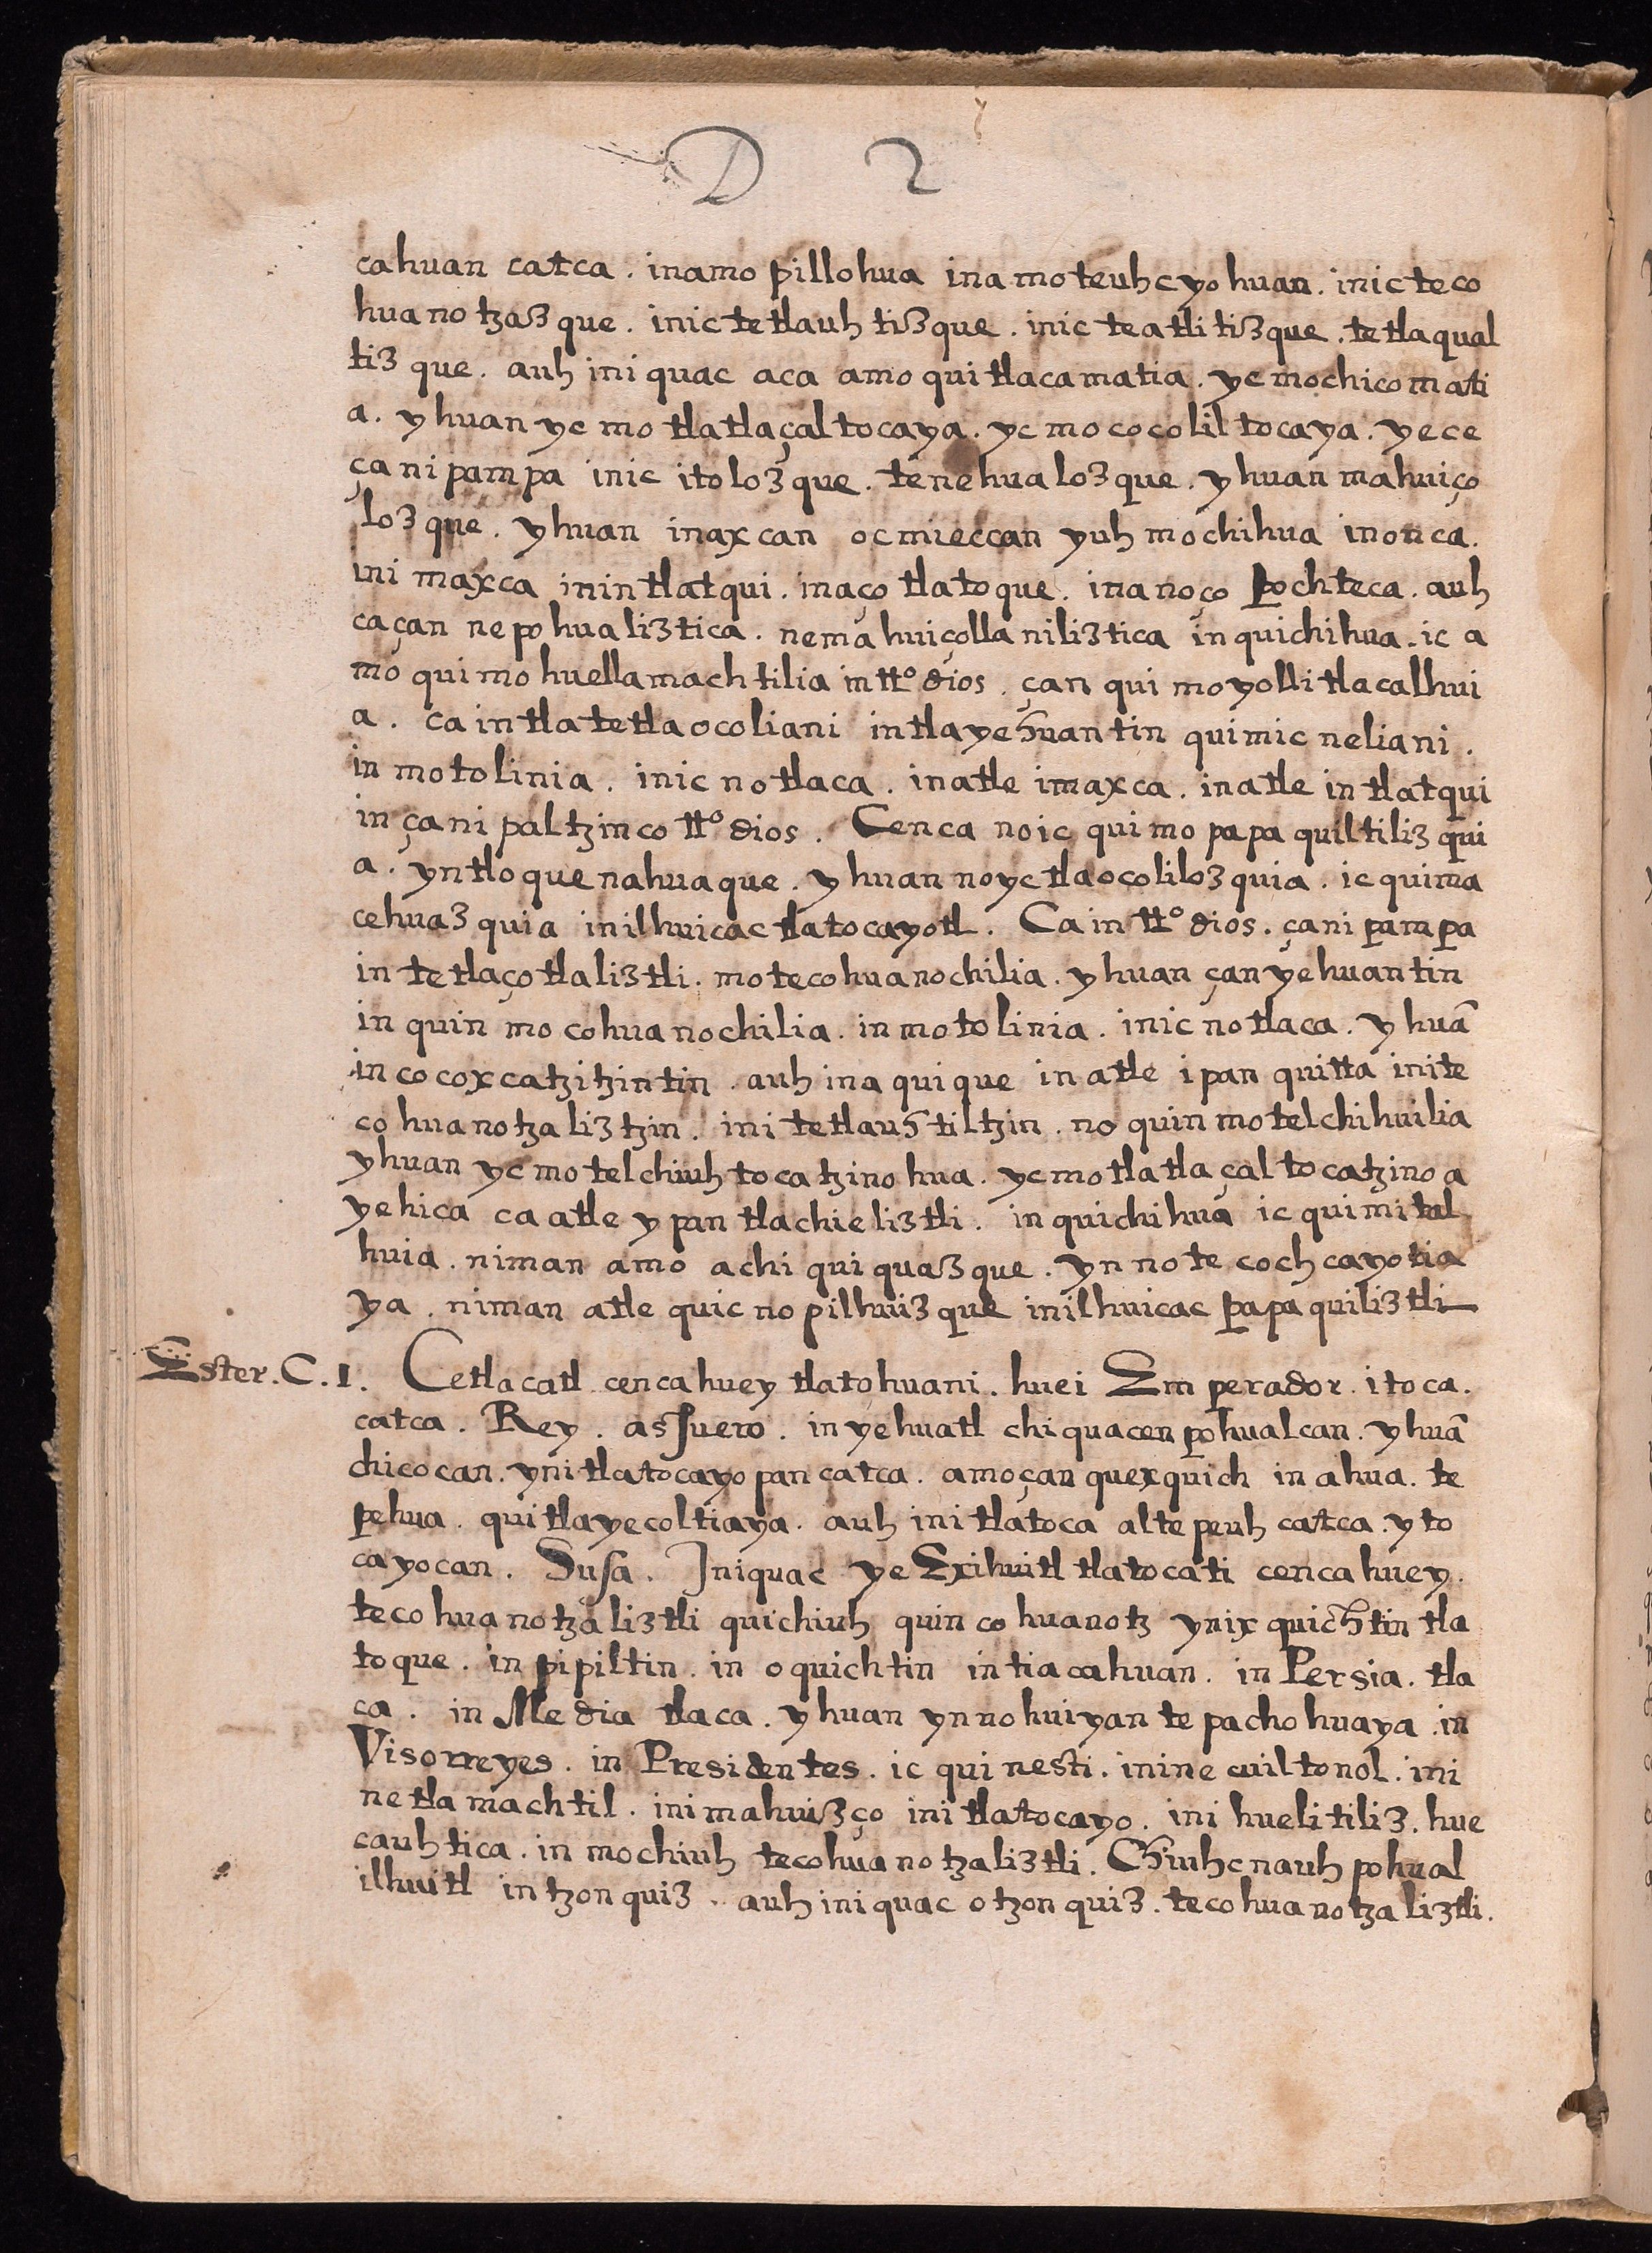 D 2
cahuan catca. inamo pillohua inamoteuhcyohuan. inic teco
huanotzazque. inictetlauhtizque. inic teatlitizque. tetlaqual
tizque. auh iniquac aca amo quitlacamatia. yc mochicomati
a. yhuan yc motlatlaçaltocaya. yc mococoliltocaya. yece
çanipampa inic itolozque. tenehualozque. yhuan mahuiço
lozque. yhuan inaxcan ocmieccan yuh mochihua inonca.
inimaxca inintlatqui. inaço tlatoque. inanoço pochteca. auh
caçan nepohualiztica. nemahuiçollaniliztica inquichihua. ic a
mo quimohuellamachtilia in tt.º dios. çan quimoyollitlacalhui
a. ca intla tetlaocoliani intlayehuantin quimicneliani.
in motolinia. in icnotlaca. inatle imaxca. inatle intlatqui
in çanipaltzinco tt.º dios. Cenca noic quimopapaquiltilizqui
a. yn tloque nahuaque. yhuan noyc tlaocolilozquia. ic quima
cehuazquia inilhuicac tlatocayotl. Ca in tt.º dios. çanipampa
in tetlaçotlaliztli. motecohuanochilia. yhuan çanyehuantin
in quinmocohuanochilia. in motolinia. in icnotlaca. yhuā
in cocoxcatzitzintin. auh inaquique in atle ipan quitta inite
cohuanotzaliztzin. initetlauhtiltzin. no quinmotelchihuilia
yhuan yc motelchiuhtocatzinohua. yc motlatlaçaltocatzinoa
yehica ca atle ypan tlachieliztli. in quichihua ic quimital
huia. niman amo achi quiquazque. yn notecochcayotia
ya. niman atle quicnopilhuizque inilhuicac papaquiliztli
Ester. C. 1. Cetlacatl cencahuey tlatohuani. huei Emperador. itoca.
catca. Rey. assuero. in yehuatl chiquacenpohualcan. yhuā
chicocan. ynitlatocayopan catca. amoçan quexquich in ahua. te
pehua. quitlayecoltiaya. auh initlatoca altepeuh catca. yto
cayocan. Susa. Iniquac ye Exihuitl tlatocati cencahuey.
tecohuanotzaliztli quichiuh quincohuanotz ynixquichtin tla
toque. in pipiltin. in oquichtin in tiacahuan. in Persia. tla
ca. in Media tlaca. yhuan ynnohuiyan tepachohuaya. in
Visorreyes. in Presidentes. ic quinesti. ininecuiltonol. ini
netlamachtil. inimahuizço initlatocayo. ini huelitiliz. hue
cauhtica. in mochiuh tecohuanotzaliztli. Chiuhcnauhpohual
ilhuitl in tzonquiz. auh iniquac otzonquiz. tecohuanotzaliztli.